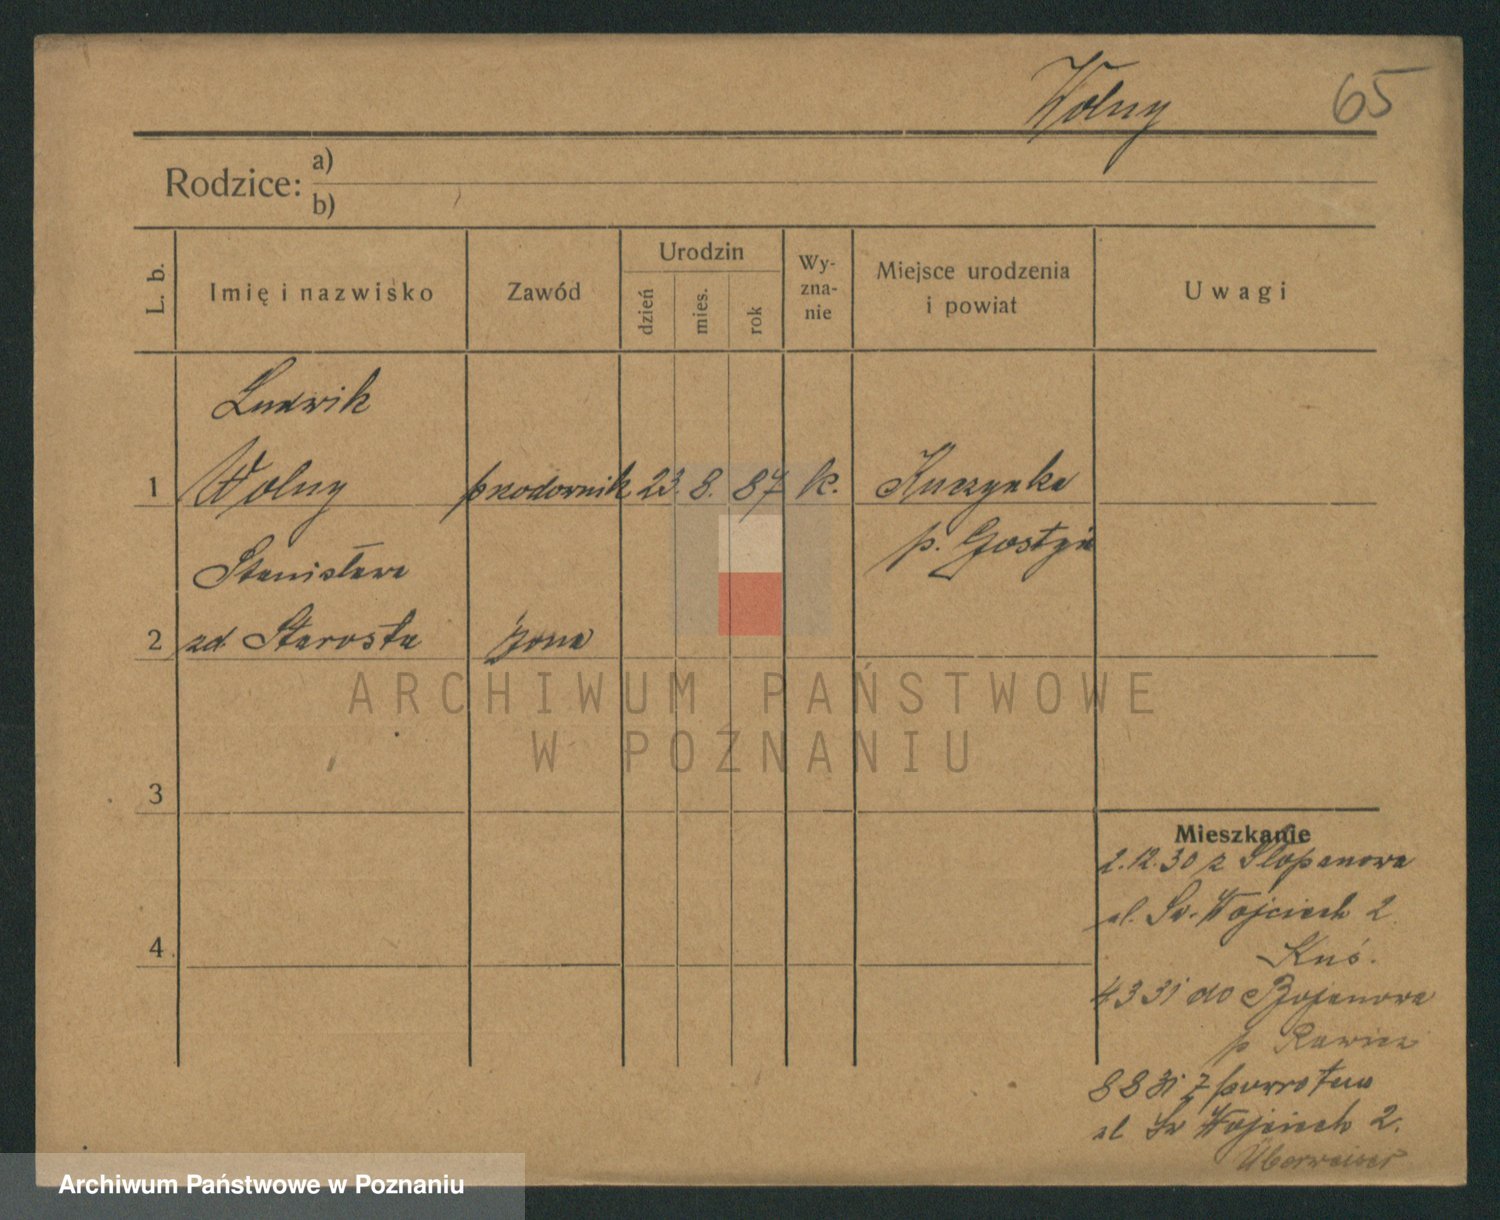 Wolny 65
Rodzice: a)
b)
L. b.
Imię i nazwisko
Zawód
Urodzin
dzień
mies.
rok
Wy-
zna-
nie
Miejsce urodzenia
i powiat
Uwagi
Ludwik
1 Wolny przodownik 23. 8. 87 k. Kuczynka
p. Gostyń
Stanisława
2 zd. Starosta żona
ARCHIWUM PAŃSTWOWE
W POZNANIU
3
Mieszkanie
2.12.30 z Słopanowa
ul. Św. Wojciech 2
4 Kuś.
4 3 31 do Bojanowa
p Rawicz
8 8 31 z powrotem
ul Św Wojciech 2.
Archiwum Państwowe w Poznaniu